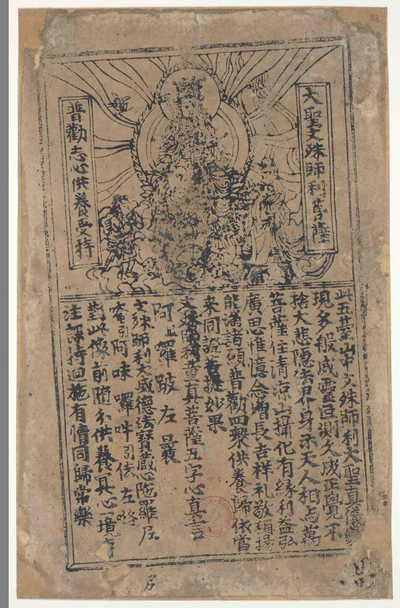 大聖文殊師利菩薩
普勸志心供養受持
此五臺山中文殊師利大聖真儀變
現多般威靈叵測久成正覺不
捨大悲隱法界身示天人相与萬
菩薩住清涼山攝化有緣利益弘
廣思惟憶念增長吉祥礼敬稱揚
能滿諸願普勸四眾供養歸依當
來同證菩提妙果
文殊師利童真菩薩五字心真言
阿上囉跛左曩
文殊師利大威德法寶藏心陀羅尼
唵引阿味囉吽引佉左
對此像前隨分供養冀心一境專
注課持迴施有情同歸常樂